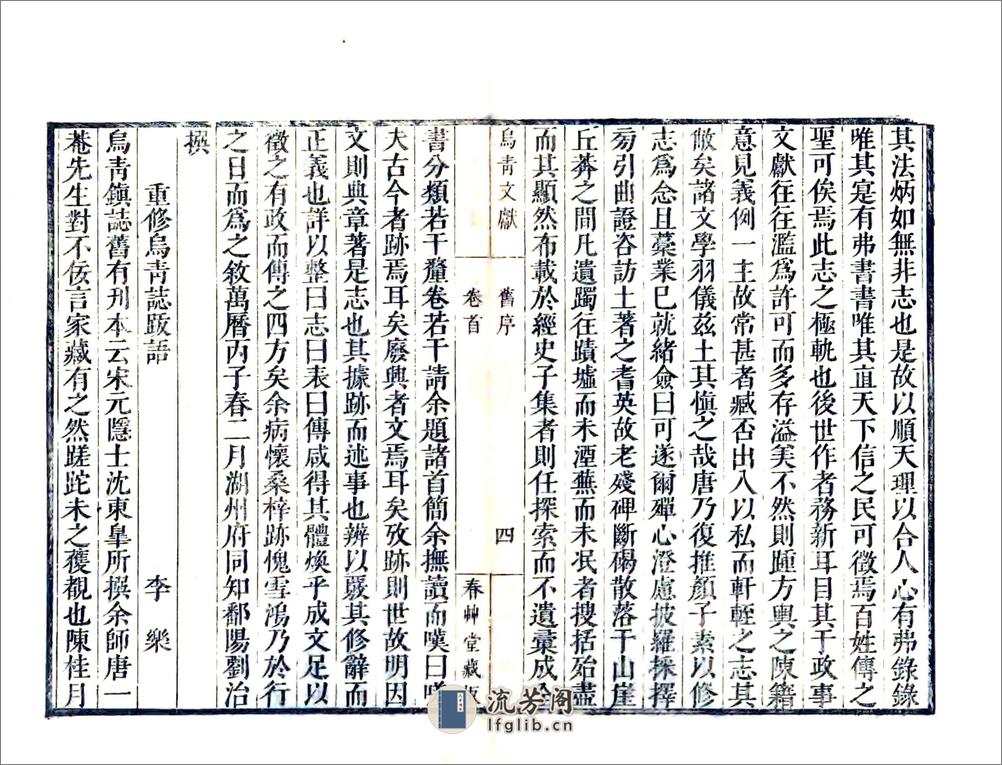 其法炳如無非志也是故以順天理以合人心有弗錄錄
唯其寔有弗書書唯其宜天下信之民可徵焉百姓傳之
聖可俟焉此志之極軌也後世作者務新耳目其于政事
文獻往往濫為許可而多存溢美不然則踵方輿之陳籍
意見義例一主故常甚者臧否出入以私而軒輊之志其
敝矣諸文學羽儀茲土其慎之哉唐乃復推顏子素以修
志為念且藁業已就緒僉曰可遂爾殫心澄慮披羅採擇
旁引曲證咨訪土著之耆英故老殘碑斷碣散落于山崖
丘莽之間凡遺躅往蹟墟而未湮蕪而未泯者搜括殆盡
而其顯然布載於經史子集者則任探索而不遺彙成全
烏青文獻 舊序 四
卷首 春艸堂藏
書分類若干釐卷若干請余題諸首簡余撫讀而嘆曰嗟
夫古今者跡焉耳矣廢興者文焉耳矣攷跡則世故明因
文則典章著是志也其據跡而述事也辨以覈其修辭而
正義也詳以整曰志曰表曰傳咸得其體煥乎成文足以
徵之有政而傳之四方矣余病懷桑梓跡愧雪鴻乃於行
之日而為之敘萬曆丙子春二月湖州府同知鄱陽劉治
撰
重修烏青誌跋語 李樂
烏青鎮誌舊有刊本云宋元隱士沈東皐所撰余師唐一
菴先生對不佞言家藏有之然蹉跎未之獲覩也陳桂月
流芳阁
lfglib.cn